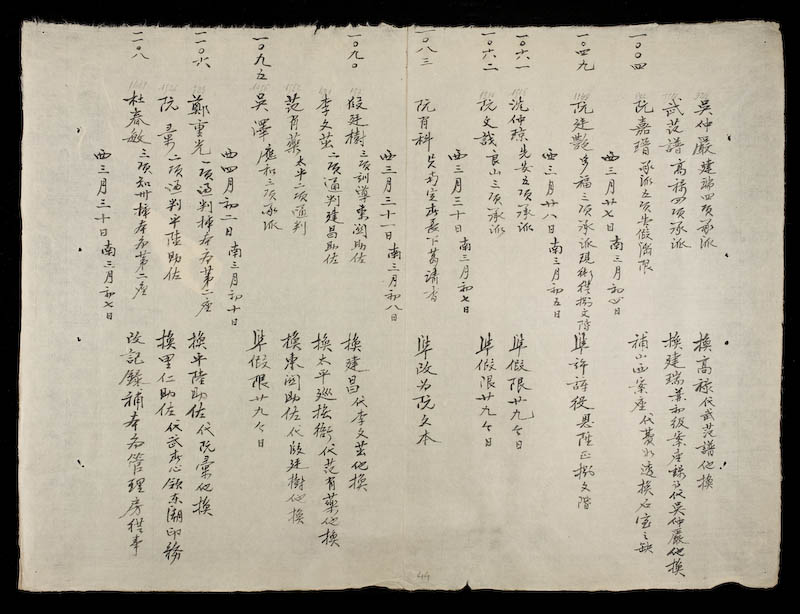 吳仲嚴建瑞四項承派 換高祿代武范譜他換
武范譜高祿四項承派 換建瑞 代吳仲嚴他換
一〇〇四 阮嘉瑨承派五項告假滿限 補山西案座代黃 換石室之缺
西三月廿七日南三月初四日
一〇四九 阮建艷多福三項承派現銜從捌文階 準許 從恩陞正捌文階
西三月廿八日南三月初五日
一〇六一 沈仲琼先安五項承派 準假限廿九个日
一〇六二 阮文哉良山三項承派 準假限廿九个日
西三月三十日南三月初七日
一〇八三 阮有科 準改名阮文本
西三月三十一日南三月初八日
一〇九〇 段廷樹三項訓導東關助佐 換建昌代李文茁他換
李文茁二項通判建昌助佐 換太平巡撫銜代范有藥他換
范有藥太平二項通判 換東關助佐代段廷樹他換
一〇九五 吳澤應和三項承派 準假限廿九个日
西四月初二日南三月初十日
一一〇六 鄭重光一項通判捧本府第二座 換平陸助佐代阮彙他換
阮彙二項通判平陸助佐 換里仁助佐代武 心領東潮印務
一一〇八 杜春敏三項知州捧本府第二座 改記錄補本府管理房從事
西三月三十日南三月初七日
44